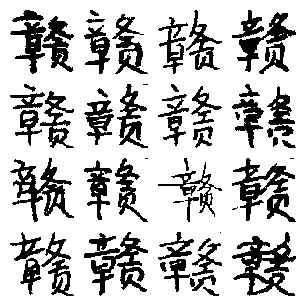 赣赣赣赣
赣赣赣赣
赣赣赣赣
赣赣赣赣